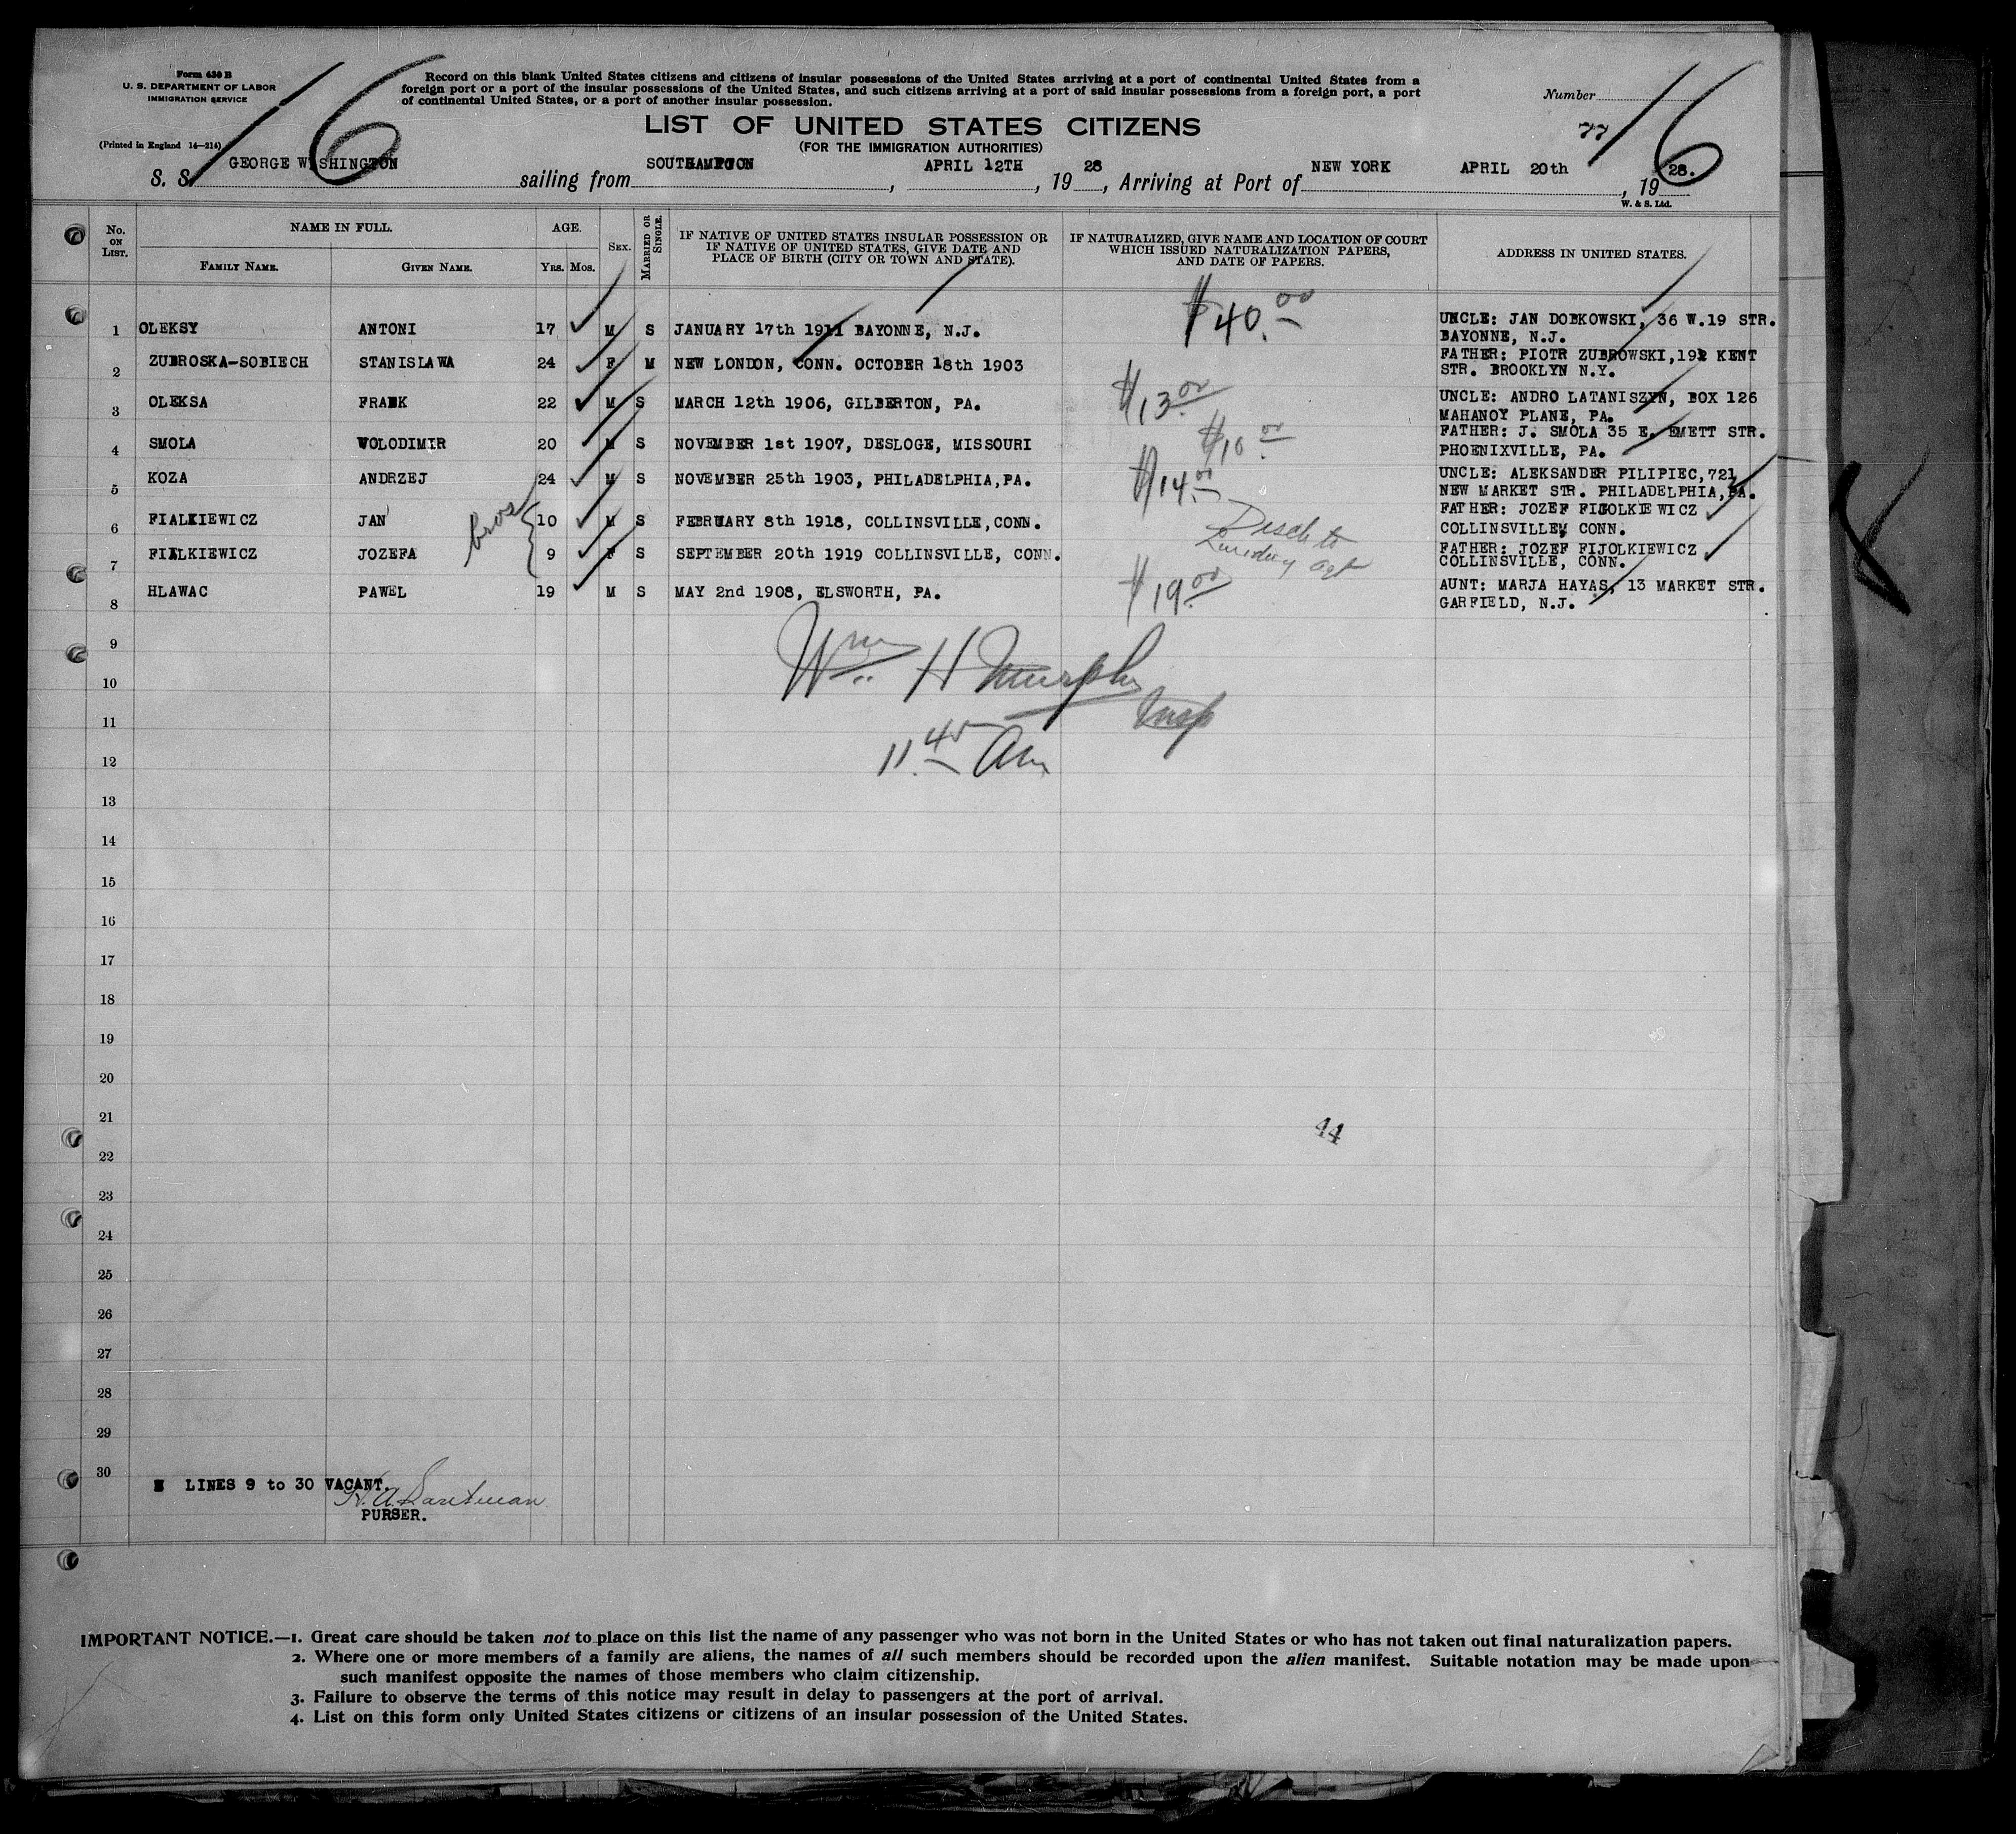 Form 630 B
U. S. DEPARTMENT OF LABOR
IMMIGRATION SERVICE
(Printed in England 14—214)
16
Record on this blank United States citizens and citizens of insular possessions of the United States arriving at a port of continental United States from a
foreign port or a port of the insular possessions of the United States, and such citizens arriving at a port of said insular possessions from a foreign port, a port
of continental United States, or a port of another insular possession.
Number
77
16
LIST OF UNITED STATES CITIZENS
(FOR THE IMMIGRATION AUTHORITIES)
S. S. GEORGE WASHINGTON sailing from SOUTHAMPTON, APRIL 12TH, 1928, Arriving at Port of NEW YORK APRIL 20th, 1928.
W. & S. Ltd.
No. ON LIST. NAME IN FULL. AGE. SEX. MARRIED OR SINGLE. IF NATIVE OF UNITED STATES INSULAR POSSESSION OR IF NATIVE OF UNITED STATES, GIVE DATE AND PLACE OF BIRTH (CITY OR TOWN AND STATE). IF NATURALIZED, GIVE NAME AND LOCATION OF COURT WHICH ISSUED NATURALIZATION PAPERS, AND DATE OF PAPERS. ADDRESS IN UNITED STATES.
FAMILY NAME. GIVEN NAME. Yrs. Mos.
1 OLEKSY ANTONI 17 M S JANUARY 17th 1911 BAYONNE, N.J. $40.00 UNCLE: JAN DOBKOWSKI, 36 W.19 STR.
BAYONNE, N.J.
2 ZUBROSKA-SOBIECH STANISLAWA 24 F M NEW LONDON, CONN. OCTOBER 18th 1903 FATHER: PIOTR ZUBROWSKI, 192 KENT
STR. BROOKLYN N.Y.
3 OLEKSA FRANK 22 M S MARCH 12th 1906, GILBERTON, PA. $13.00 UNCLE: ANDRO LATANISZYN, BOX 126
MAHANOY PLANE, PA.
4 SMOLA WOLODIMIR 20 M S NOVEMBER 1st 1907, DESLOGE, MISSOURI $10.00 FATHER: J. SMOLA 35 E. EMETT STR.
PHOENIXVILLE, PA.
5 KOZA ANDRZEJ 24 M S NOVEMBER 25th 1903, PHILADELPHIA, PA. $14.00 UNCLE: ALEKSANDER PILIPIEC, 721
NEW MARKET STR. PHILADELPHIA, PA.
6 FIALKIEWICZ JAN 10 M S FEBRUARY 8th 1918, COLLINSVILLE, CONN. FATHER: JOZEF FIJOLKIEWICZ
COLLINSVILLE, CONN.
bros
Disch to
7 FIALKIEWICZ JOZEFA 9 F S SEPTEMBER 20th 1919 COLLINSVILLE, CONN. FATHER: JOZEF FIJOLKIEWICZ
COLLINSVILLE, CONN.
8 HLAWAC PAWEL 19 M S MAY 2nd 1908, ELSWORTH, PA. $19.00 AUNT: MARJA HAYAS, 13 MARKET STR.
GARFIELD, N.J.
9
Wm H Murphy
10
Insp
11
11.45 Am
12
13
14
15
16
17
18
19
20
21
44
22
23
24
25
26
27
28
29
30
LINES 9 to 30 VACANT.
PURSER.
IMPORTANT NOTICE.—1. Great care should be taken not to place on this list the name of any passenger who was not born in the United States or who has not taken out final naturalization papers.
2. Where one or more members of a family are aliens, the names of all such members should be recorded upon the alien manifest. Suitable notation may be made upon
such manifest opposite the names of those members who claim citizenship.
3. Failure to observe the terms of this notice may result in delay to passengers at the port of arrival.
4. List on this form only United States citizens or citizens of an insular possession of the United States.